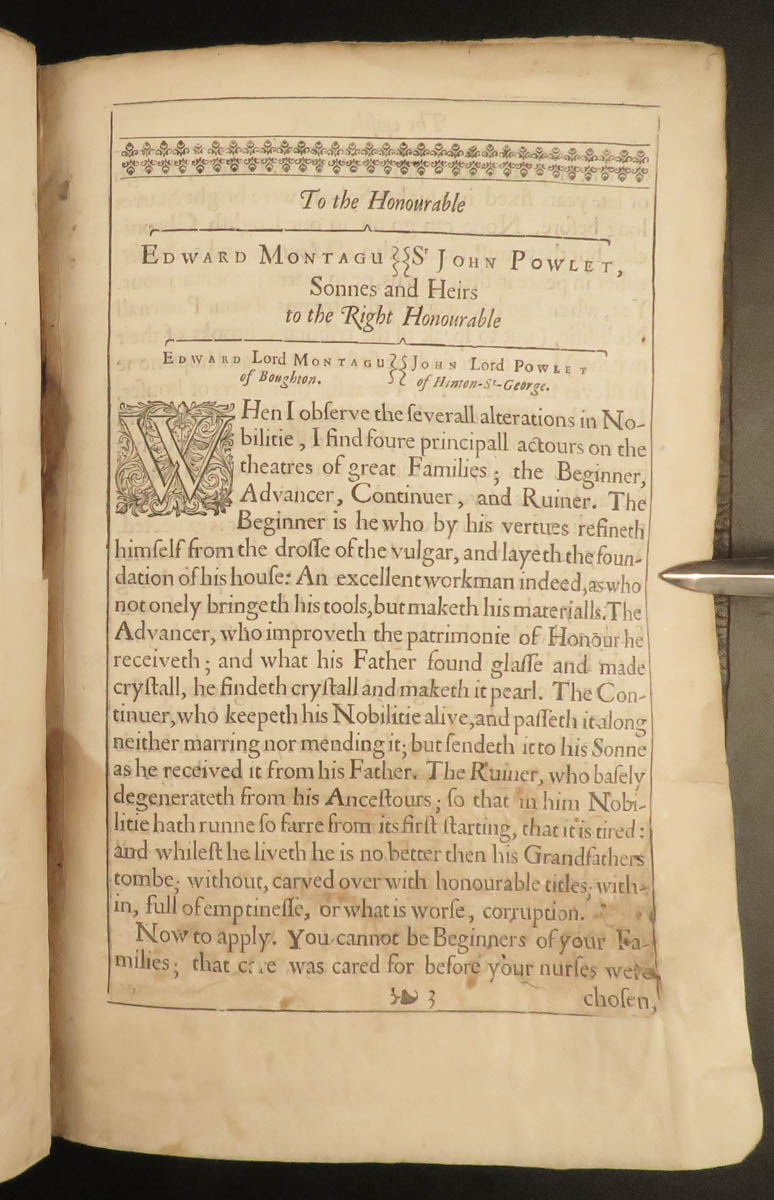 To the Honourable
EDWARD MONTAGU Sr JOHN POWLET,
Sonnes and Heirs
to the Right Honourable
EDWARD Lord MONTAGU JOHN Lord POWLET
of Boughton. of Hinton-St-George.
WHen I obſerve the ſeverall alterations in No-
bilitie, I find foure principall actours on the
theatres of great Families; the Beginner,
Advancer, Continuer, and Ruiner. The
Beginner is he who by his vertues refineth
himſelf from the droſſe of the vulgar, and layeth the foun-
dation of his houſe: An excellent workman indeed, as who
not onely bringeth his tools, but maketh his materialls. The
Advancer, who improveth the patrimonie of Honour he
receiveth; and what his Father found glaſſe and made
cryſtall, he findeth cryſtall and maketh it pearl. The Con-
tinuer, who keepeth his Nobilitie alive, and paſſeth it along
neither marring nor mending it; but ſendeth it to his Sonne
as he received it from his Father. The Ruiner, who baſely
degenerateth from his Anceſtours; ſo that in him Nobi-
litie hath runne ſo farre from its firſt ſtarting, that it is tired:
and whileſt he liveth he is no better then his Grandfathers
tombe; without, carved over with honourable titles; with-
in, full of emptineſſe, or what is worſe, corruption.
Now to apply. You cannot be Beginners of your Fa-
milies; that care was cared for before your nurſes were
3 choſen,